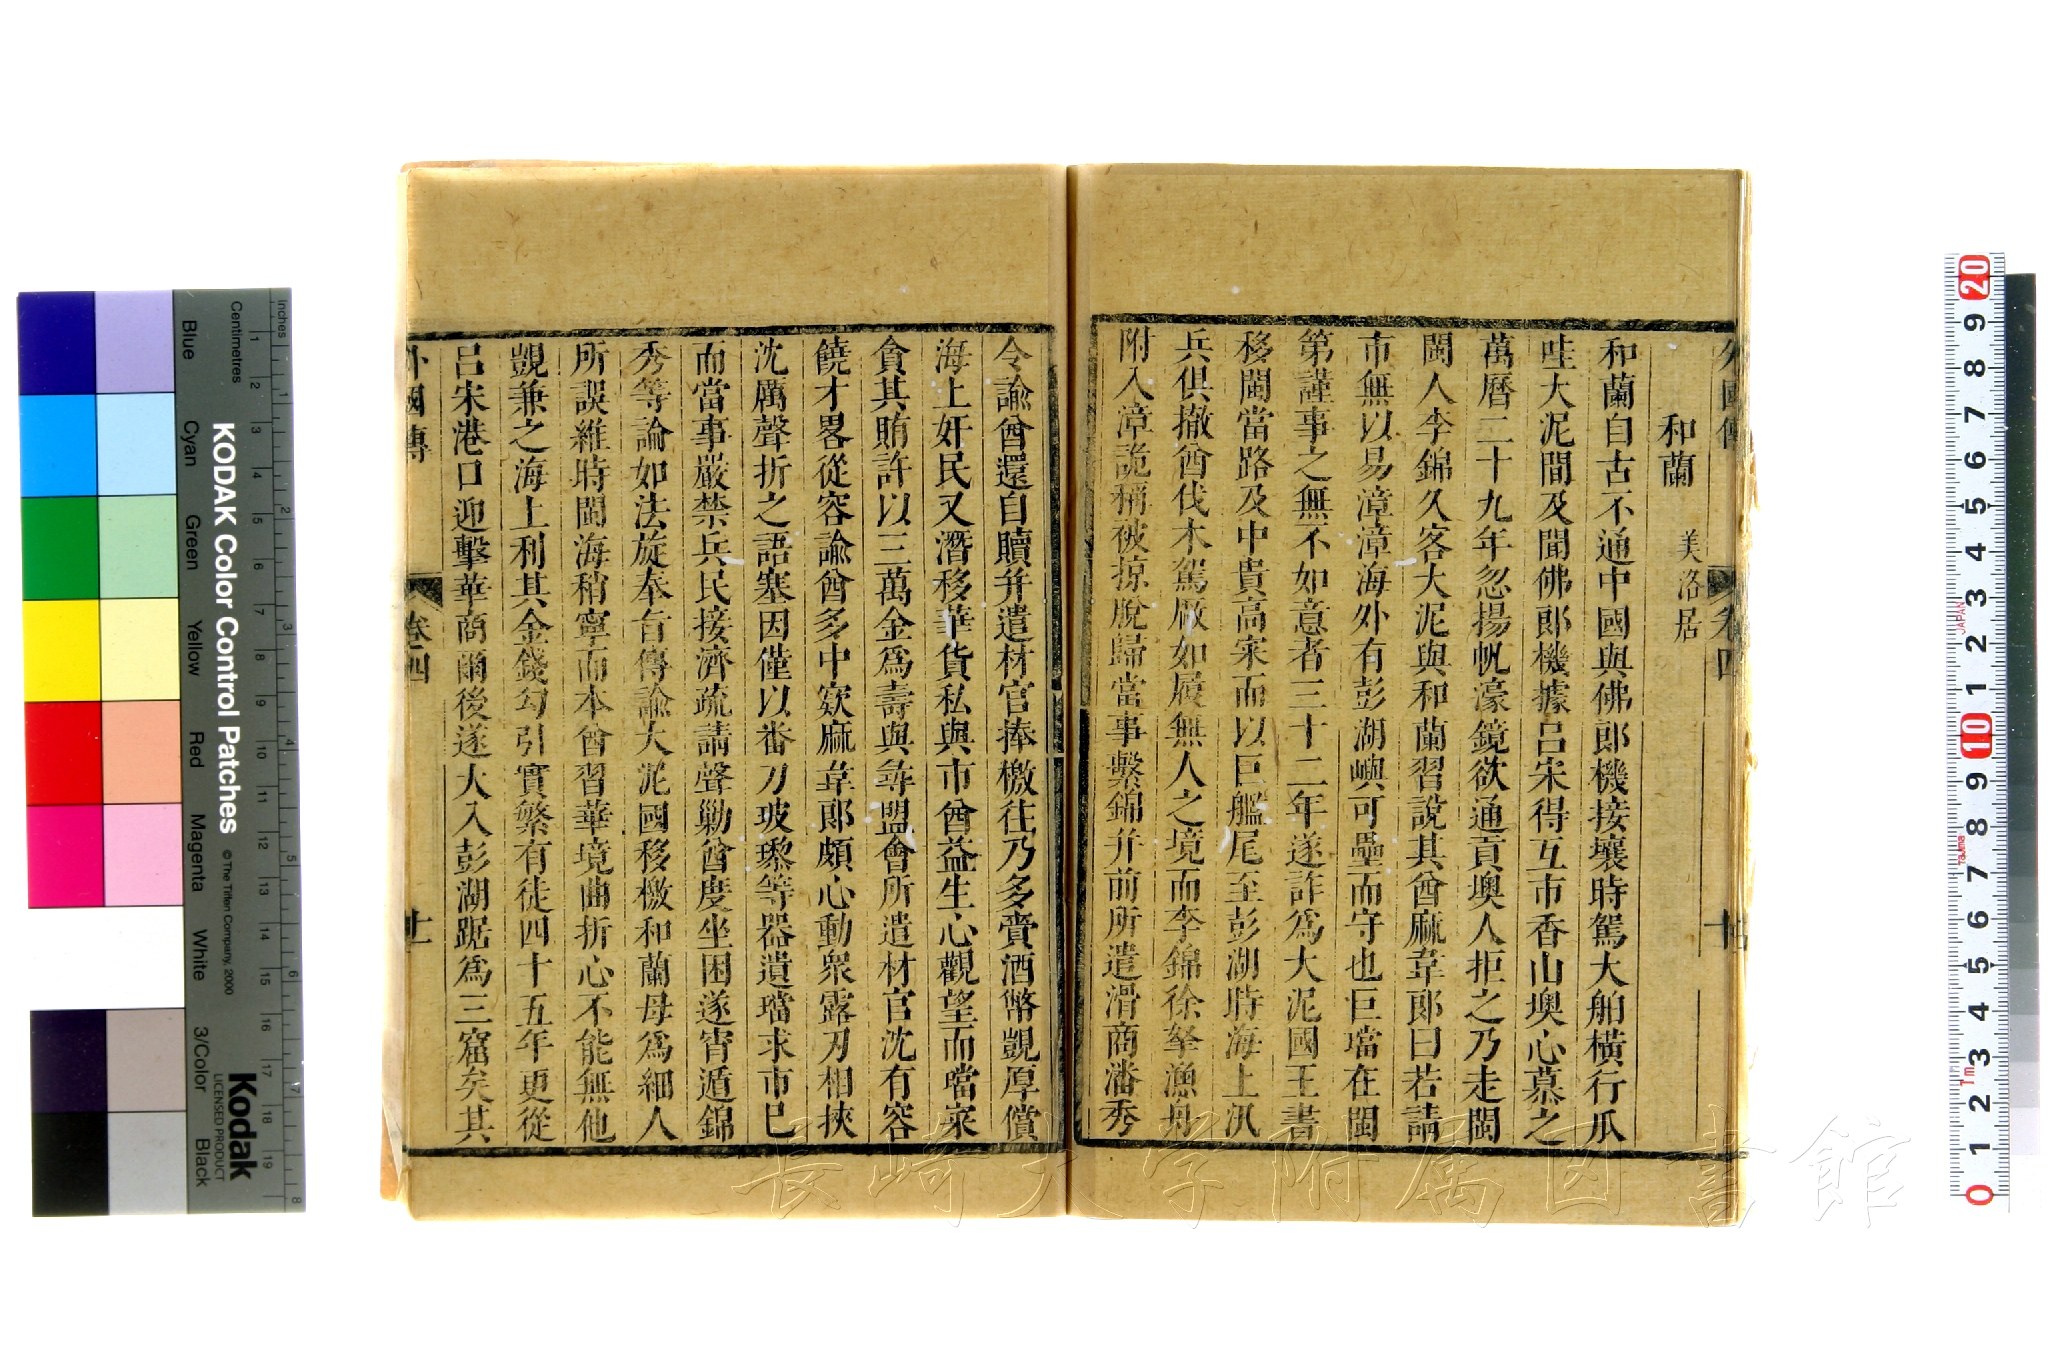 外國傳 卷四
和蘭 美洛居
和蘭自古不通中國與佛郎機接壤時駕大舶橫行瓜
哇大泥間及聞佛郎機據呂宋得互市香山墺心慕之
萬曆二十九年忽揚帆濠鏡欲通貢墺人拒之乃走閩
閩人李錦久客大泥與和蘭習說其酋麻韋郎曰若請
市無以易漳漳海外有彭湖嶼可壘而守也巨璫在閩
第謹事之無不如意者三十二年遂詐為大泥國王書
移閩當路及中貴高寀而以巨艦尾至彭湖時海上汛
兵俱撤酋伐木駕厰如履無人之境而李錦徐拏漁舟
附入漳詭稱被掠脫歸當事繫錦并前所遣滑商潘秀
令諭酋還自贖并遣材官捧檄往乃多賫酒幣覬厚償
海上奸民又潛移華貨私與市酋益生心觀望而噹寀
貪其賄許以三萬金爲壽與尋盟會所遣材官沈有容
饒才畧從容諭酋多中窽麻韋郎頗心動衆露刃相挾
沈厲聲折之語塞因僅以畨刀玻瓈等器遺璫求市巳
而當事嚴禁兵民接濟疏請聲勦酋度坐困遂宵遁錦
秀等論如法旋奉旨傳諭大泥國移檄和蘭毋爲細人
所誤維時閩海稍寧而本酋習華境曲折心不能無他
覬兼之海上利其金錢勾引實繁有徒四十五年更從
呂宋港口迎擊華商爾後遂大入彭湖踞爲三窟矣其
外國傳 卷四 十一
KODAK Color Control Patches
© The Tiffen Company, 2000
Kodak
LICENSED PRODUCT
Inches
Centimetres
Blue
Cyan
Green
Yellow
Red
Magenta
White
3/Color
Black
1 2 3 4 5 6 7 8 9 10 11 12 13 14 15 16 17 18 19
1 2 3 4 5 6 7 8
20 9 8 7 6 5 4 3 2 1 10 9 8 7 6 5 4 3 2 1 0
JAPAN
Tajima
長崎大学附属図書館